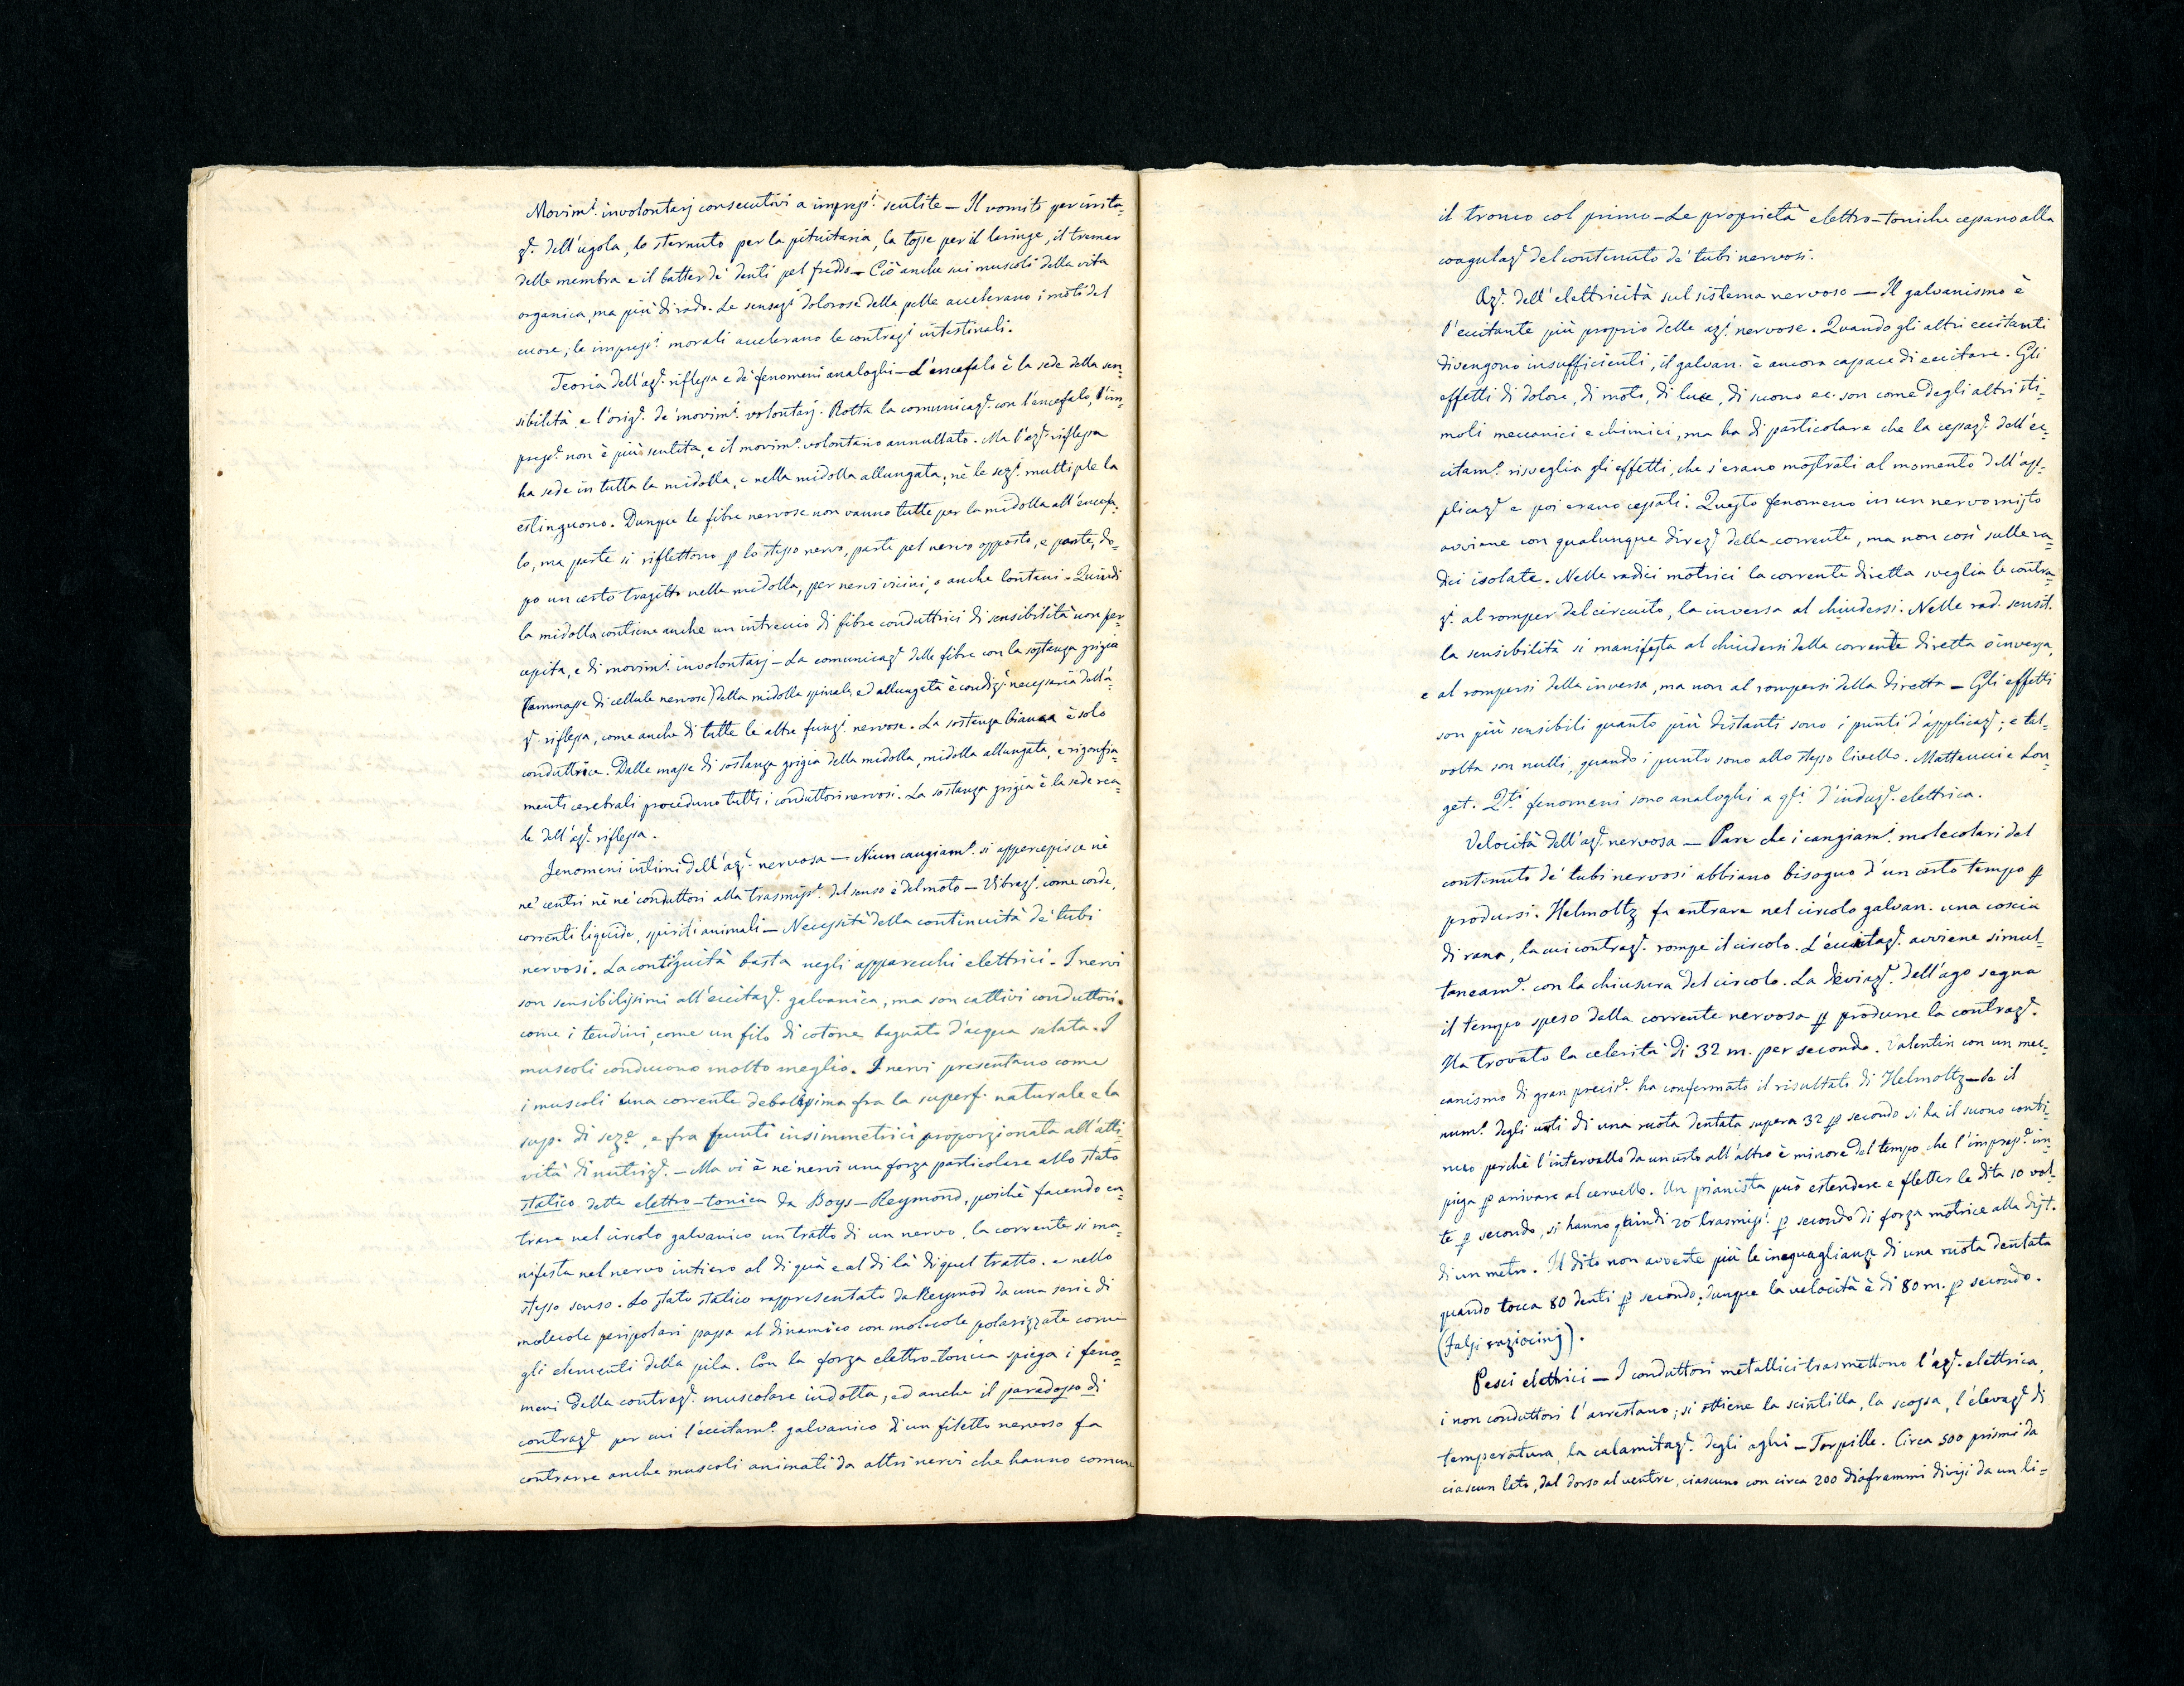 Movim.ⁱ involontarj consecutivi a impress.ⁱ sentite — Il vomito per irrita-
z.ᵉ dell'ugola, lo sternuto per la pituitaria, la tosse per il laringe, il tremar
delle membra e il batter de' denti pel freddo — Ciò anche sui muscoli della vita
organica, ma più di rado. Le sensaz.ⁱ dolorose della pelle accelerano i moti del
cuore; le impress.ⁱ morali accelerano le contraz.ⁱ intestinali.
Teoria dell'az.ᵉ riflessa e de' fenomeni analoghi — L'encefalo è la sede della sen-
sibilità, e l'orig.ᵉ de' movim.ⁱ volontarj. Rotta la comunicaz.ᵉ con l'encefalo, l'im-
press.ᵉ non è più sentita, e il movim.ᵒ volontario annullato. Ma l'az.ᵉ riflessa
ha sede in tutta la midolla, e nella midolla allungata; nè le sez.ⁱ multiple la
estinguono. Dunque le fibre nervose non vanno tutte per la midolla all'encefa-
lo, ma parte si riflettono p lo stesso nervo, parte pel nervo opposto, e parte, do-
po un certo tragitto nella midolla, per nervi vicini, e anche lontani. Quindi
la midolla contiene anche un intreccio di fibre conduttrici di sensibilità non per-
cepita, e di movim.ⁱ involontarj — La comunicaz.ᵉ delle fibre con la sostanza grigia
(ammasse di cellule nervose) della midolla spinale, ed allungata è condiz.ᵉ necessaria dell'a-
z.ᵉ riflessa, come anche di tutte le altre funz.ⁱ nervose. La sostanza bianca è solo
conduttrice. Dalle masse di sostanza grigia della midolla, midolla allungata, e rigonfia-
menti cerebrali procedono tutti i conduttori nervosi. La sostanza grigia è la sede rea-
le dell'az.ᵉ riflessa.
Fenomeni intimi dell'az.ᵉ nervosa — Niun cangiam.ᵒ si appercepisce nè
ne' centri nè ne' conduttori alla trasmiss.ᵉ del senso e del moto — Vibraz.ⁱ come corde,
correnti liquide, spiriti animali — Necessità della continuità de' tubi
nervosi. La contiguità basta negli apparecchi elettrici. I nervi
son sensibilissimi all'eccitaz.ᵉ galvanica, ma son cattivi conduttori
come i tendini, come un filo di cotone bagnato d'acqua salata. I
muscoli conducono molto meglio. I nervi presentano come
i muscoli una corrente debolissima fra la superf. naturale e la
sup. di sez.ᵉ, e fra punti insimmetrici proporzionata all'atti-
vità di nutriz.ᵉ. — Ma vi è ne' nervi una forza particolare allo stato
statico detta elettro-tonica da Boys-Reymond, poichè facendo en-
trare nel circolo galvanico un tratto di un nervo, la corrente si ma-
nifesta nel nervo intiero al di quà e al di là di quel tratto, e nello
stesso senso. Lo stato statico rappresentato da Reymod da una serie di
molecole peripolari passa al dinamico con molecole polarizzate come
gli elementi della pila. Con la forza elettro-tonica spiega i feno-
meni della contraz.ᵉ muscolare indotta, ed anche il paradosso di
contraz.ᵉ per cui l'eccitam.ᵒ galvanico di un filetto nervoso fa
contrarre anche muscoli animati da altri nervi che hanno comune
il tronco col primo — Le proprietà elettro-toniche cessano alla
coagulaz.ᵉ del contenuto de' tubi nervosi.
Az.ᵉ dell'elettricità sul sistema nervoso — Il galvanismo è
l'eccitante più proprio delle az.ⁱ nervose. Quando gli altri eccitanti
divengono insufficienti, il galvan. è ancora capace di eccitare. Gli
effetti di dolore, di moto, di luce, di suono ec. son come degli altri sti-
moli meccanici e chimici, ma ha di particolare che la cessaz.ᵉ dell'ec-
citam.ᵒ risveglia gli effetti, che s'erano mostrati al momento dell'ap-
plicaz.ᵉ e poi erano cessati. Questo fenomeno in un nervo misto
avviene con qualunque direz.ᵉ della corrente, ma non così sulle ra-
dici isolate. Nelle radici motrici la corrente diretta sveglia le contra-
z.ⁱ al romper del circuito, la inversa al chiudersi. Nelle rad. sensit.
la sensibilità si manifesta al chiudersi della corrente diretta o inversa,
e al rompersi della inversa, ma non al rompersi della diretta — Gli effetti
son più sensibili quanto più distanti sono i punti d'applicaz.ᵉ; e tal-
volta son nulli, quando i punto sono allo stesso livello. Matteucci e Lon-
get. Q.ᵗⁱ fenomeni sono analoghi a q.ˡⁱ d'induz.ᵉ elettrica.
Velocità dell'az.ᵉ nervosa — Pare che i cangiam.ⁱ molecolari del
contenuto de' tubi nervosi abbiano bisogno d'un certo tempo p
prodursi. Helmoltz fa entrare nel circolo galvan. una coscia
di rana, la cui contraz.ᵉ rompe il circolo. L'eccitaz.ᵉ avviene simul-
taneam.ᵉ con la chiusura del circolo. La deviaz.ᵉ dell'ago segna
il tempo speso dalla corrente nervosa p produrre la contraz.ᵉ.
Ha trovato la celerità di 32 m. per secondo. Valentin con un mec-
canismo di gran precis.ᵉ ha confermato il risultato di Helmoltz — Se il
num.ᵒ degli urti di una ruota dentata supera 32 p secondo si ha il suono conti-
nuo perchè l'intervallo da un urto all'altro è minore del tempo che l'impress.ᵉ im-
piega p arrivare al cervello. Un pianista può estendere e fletter le dita 10 vol-
te p secondo, si hanno quindi 20 trasmiss.ⁱ p secondo di forza motrice alla dist.
di un metro. Il dito non avverte più le ineguaglianze di una ruota dentata
quando tocca 80 denti p secondo; dunque la velocità è di 80 m. p secondo.
(Falsi raziocinj).
Pesci elettrici — I conduttori metallici trasmettono l'az.ᵉ elettrica,
i non conduttori l'arrestano; si ottiene la scintilla, la scossa, l'elevaz.ᵉ di
temperatura, la calamitaz.ᵉ degli aghi — Torpille. Circa 500 prismi da
ciascun lato, dal dorso al ventre, ciascuno con circa 200 diaframmi divisi da un li-